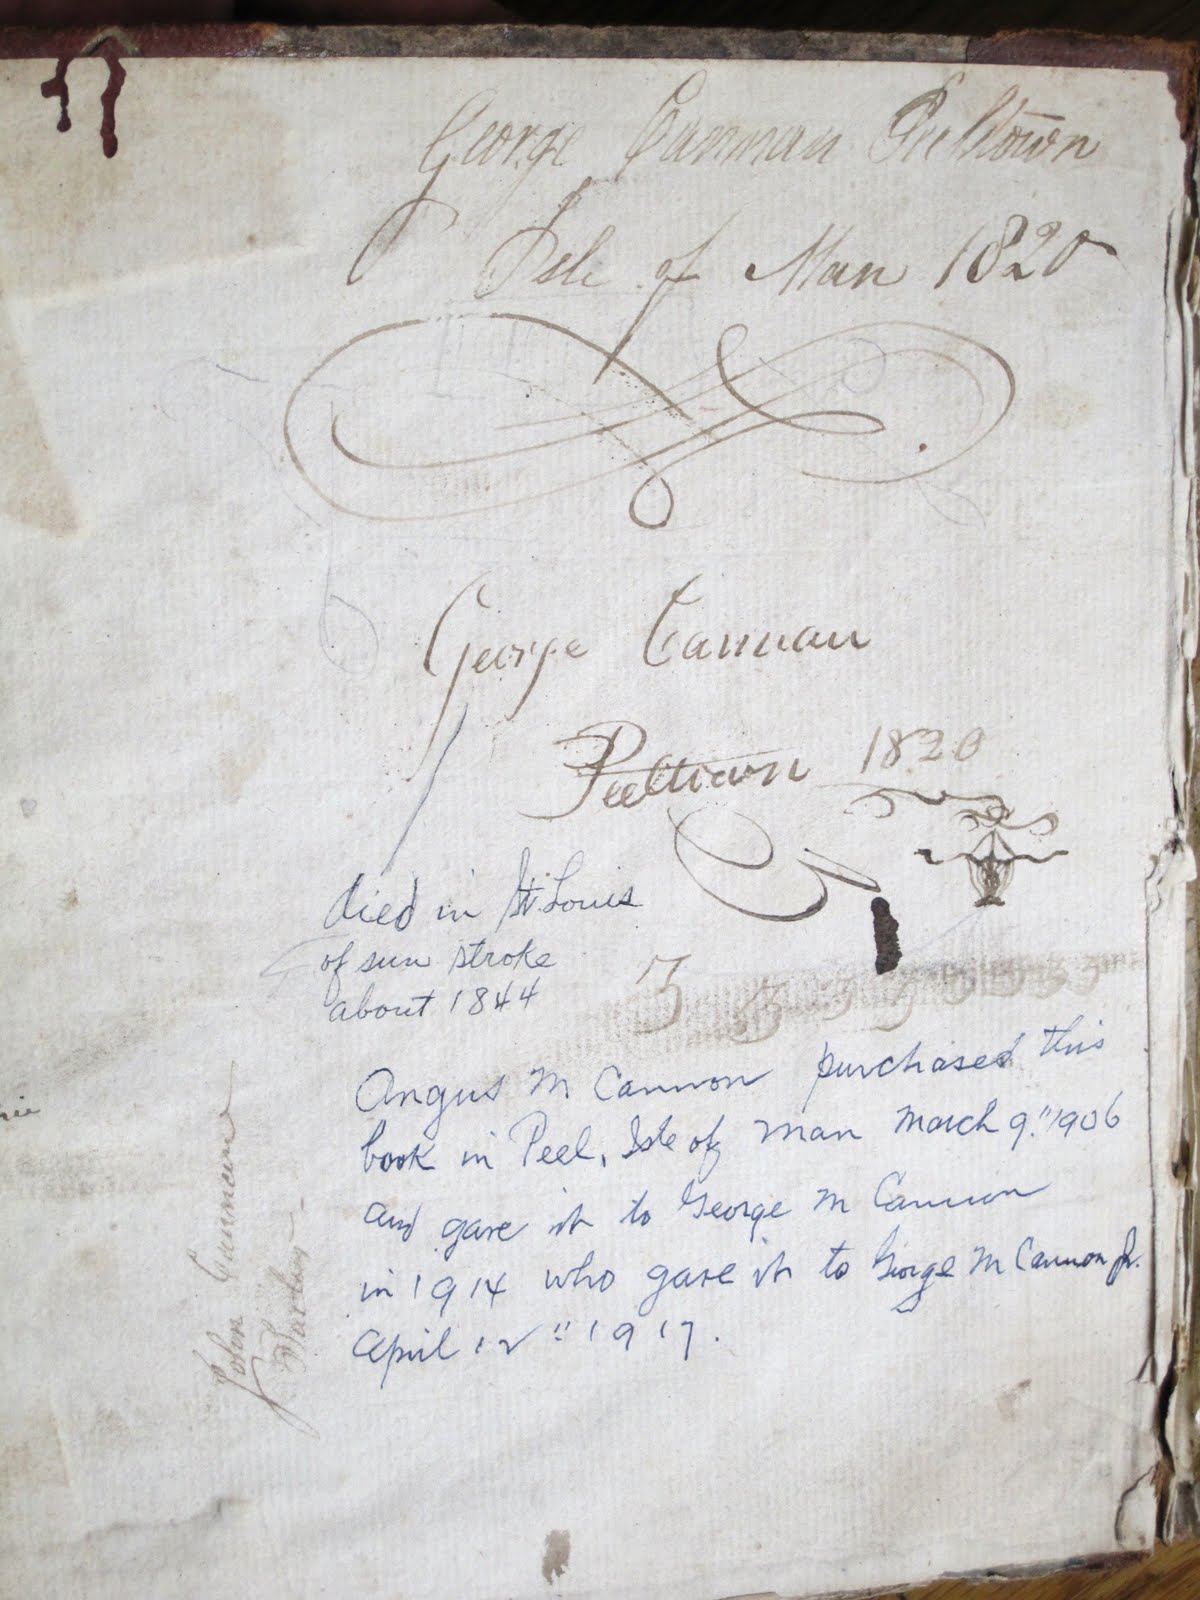 George Cannan Peeltown
Isle of Man 1820
George Cannan
Peeltown 1820
died in St. Louis
of sun stroke
about 1844
3 3 3 3 3 3 3 3
Angus M Cannon purchased this
book in Peel, Isle of Man March 9" 1906
and gave it to George M Cannon
in 1914 who gave it to George M Cannon Jr.
April 12" 1917.
John